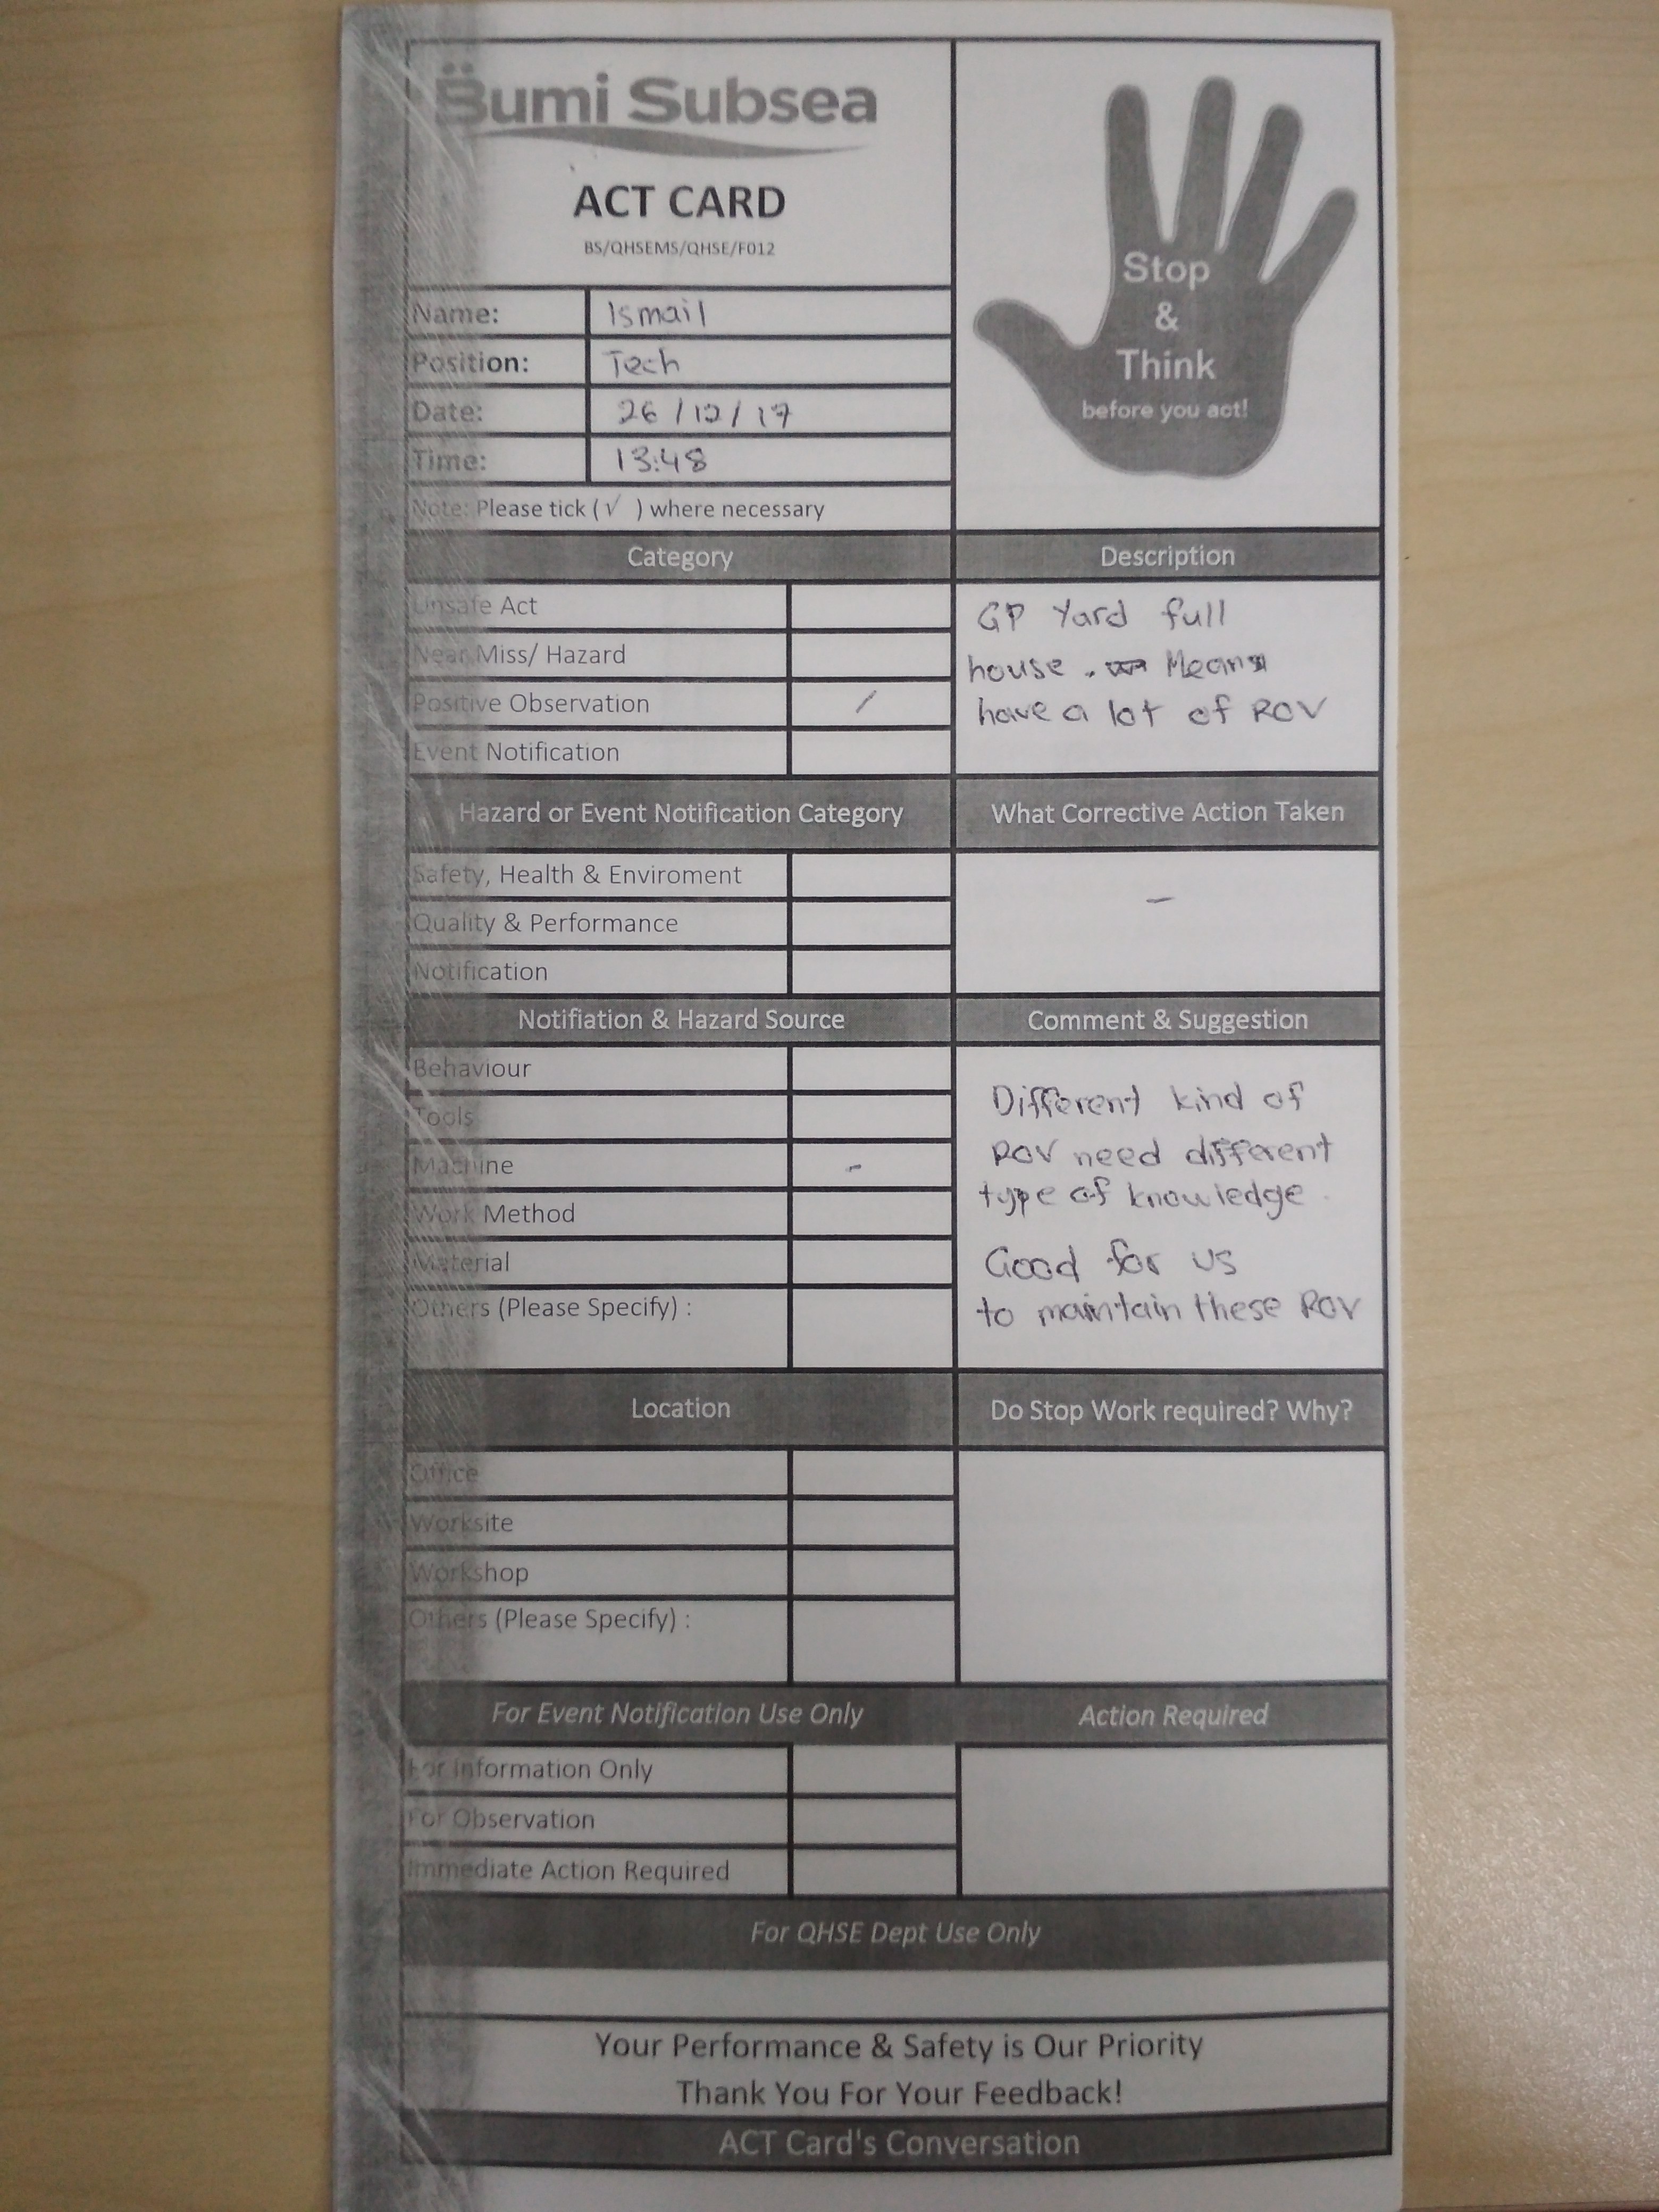 Bumi Subsea
ACT CARD
BS/QHSEMS/QHSE/F012
Stop
&
Think
before you act!
Name: Ismail
Position: Tech
Date: 26/12/17
Time: 13:48
Note: Please tick (√ ) where necessary
Category
Unsafe Act
Near Miss/ Hazard
Positive Observation /
Event Notification
Description
GP Yard full
house . Means
have a lot of ROV
Hazard or Event Notification Category
Safety, Health & Enviroment
Quality & Performance
Notification
What Corrective Action Taken
-
Notifiation & Hazard Source
Behaviour
Tools
Machine -
Work Method
Material
Others (Please Specify) :
Comment & Suggestion
Different kind of
ROV need different
type of knowledge.
Good for us
to maintain these ROV
Location
Office
Worksite
Workshop
Others (Please Specify) :
Do Stop Work required? Why?
For Event Notification Use Only
For Information Only
For Observation
Immediate Action Required
Action Required
For QHSE Dept Use Only
Your Performance & Safety is Our Priority
Thank You For Your Feedback!
ACT Card's Conversation